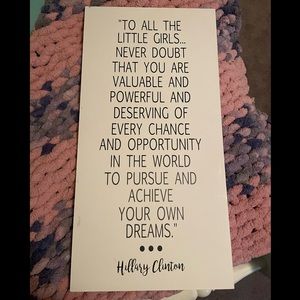 "TO ALL THE
LITTLE GIRLS...
NEVER DOUBT
THAT YOU ARE
VALUABLE AND
POWERFUL AND
DESERVING OF
EVERY CHANCE
AND OPPORTUNITY
IN THE WORLD
TO PURSUE AND
ACHIEVE
YOUR OWN
DREAMS."
Hillary Clinton